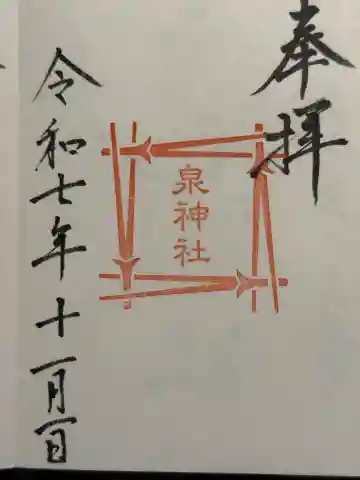 奉拝
泉神社
令和七年十一月一日